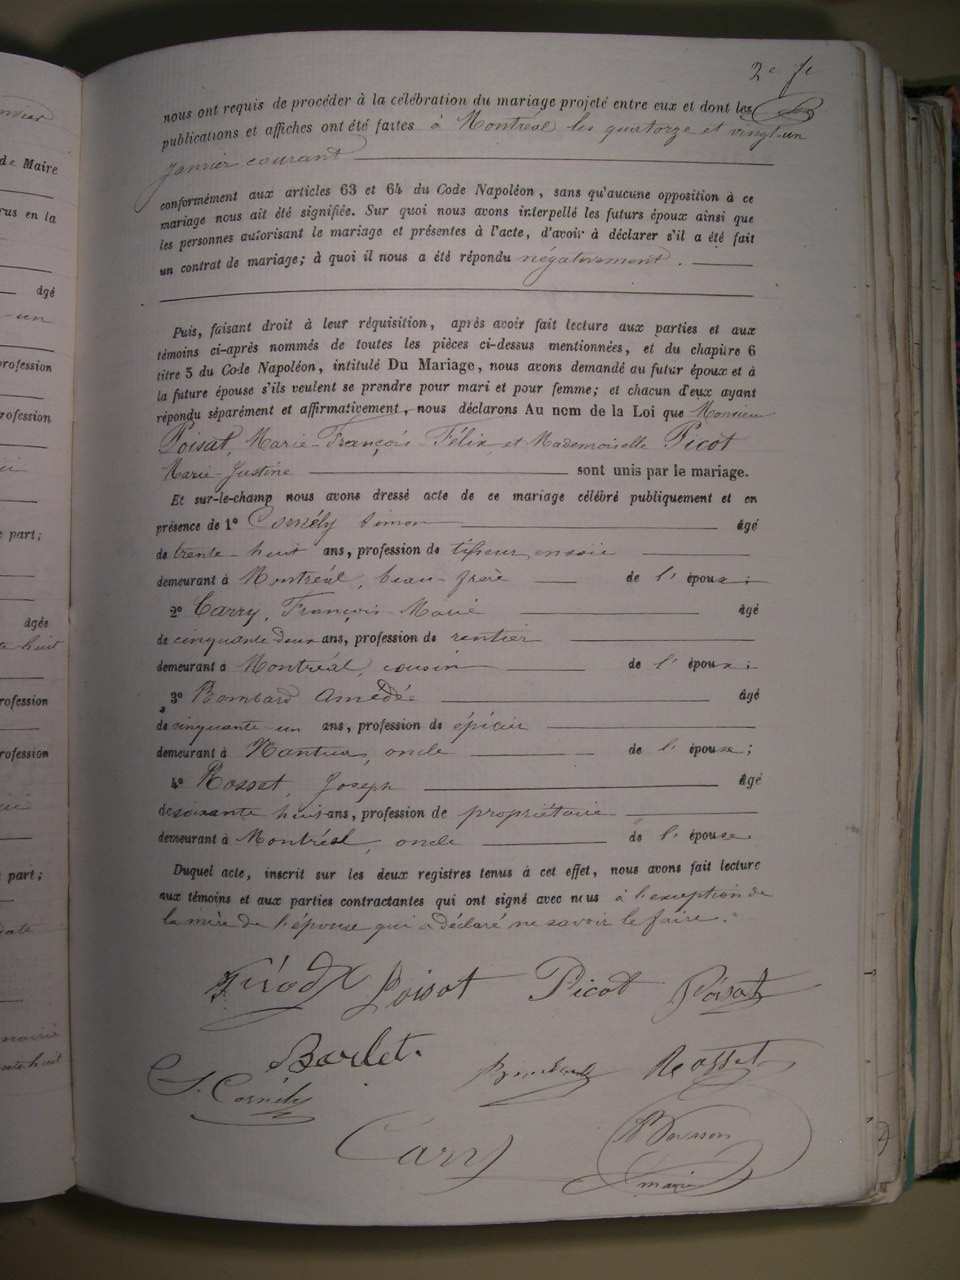 2e
nous ont requis de procéder à la célébration du mariage projeté entre eux et dont les
publications et affiches ont été faites à Montréal les quatorze et vingt-un
Janvier courant
conformément aux articles 63 et 64 du Code Napoléon, sans qu'aucune opposition à ce
mariage nous ait été signifiée. Sur quoi nous avons interpellé les futurs époux ainsi que
les personnes autorisant le mariage et présentes à l'acte, d'avoir à déclarer s'il a été fait
un contrat de mariage; à quoi il nous a été répondu négativement.
Puis, faisant droit à leur réquisition, après avoir fait lecture aux parties et aux
témoins ci-après nommés de toutes les pièces ci-dessus mentionnées, et du chapitre 6
titre 5 du Code Napoléon, intitulé Du Mariage, nous avons demandé au futur époux et à
la future épouse s'ils veulent se prendre pour mari et pour femme; et chacun d'eux ayant
répondu séparément et affirmativement, nous déclarons Au nom de la Loi que Monsieur
Poisat, Marie-François-Félix, et Mademoiselle Picot
Marie-Justine sont unis par le mariage.
Et sur-le-champ nous avons dressé acte de ce mariage célébré publiquement et en
présence de 1º Cornély Simon âgé
de trente-huit ans, profession de tisseur en soie
demeurant à Montréal, beau-frère de l'époux;
2º Carry, François-Marie âgé
de cinquante deux ans, profession de rentier
demeurant à Montréal, cousin de l'époux;
3º Bombard Amédé âgé
de cinquante-un ans, profession de épicier
demeurant à Nantua, oncle de l'épouse;
4º Rosset, Joseph âgé
de soixante huit ans, profession de propriétaire
demeurant à Montréal, oncle de l'épouse.
Duquel acte, inscrit sur les deux registres tenus à cet effet, nous avons fait lecture
aux témoins et aux parties contractantes qui ont signé avec nous à l'exception de
la mère de l'épouse qui a déclaré ne savoir le faire.
Poisat Picot Poisat
Barlet.
S. Cornély Bombard Rosset
Carry
maire